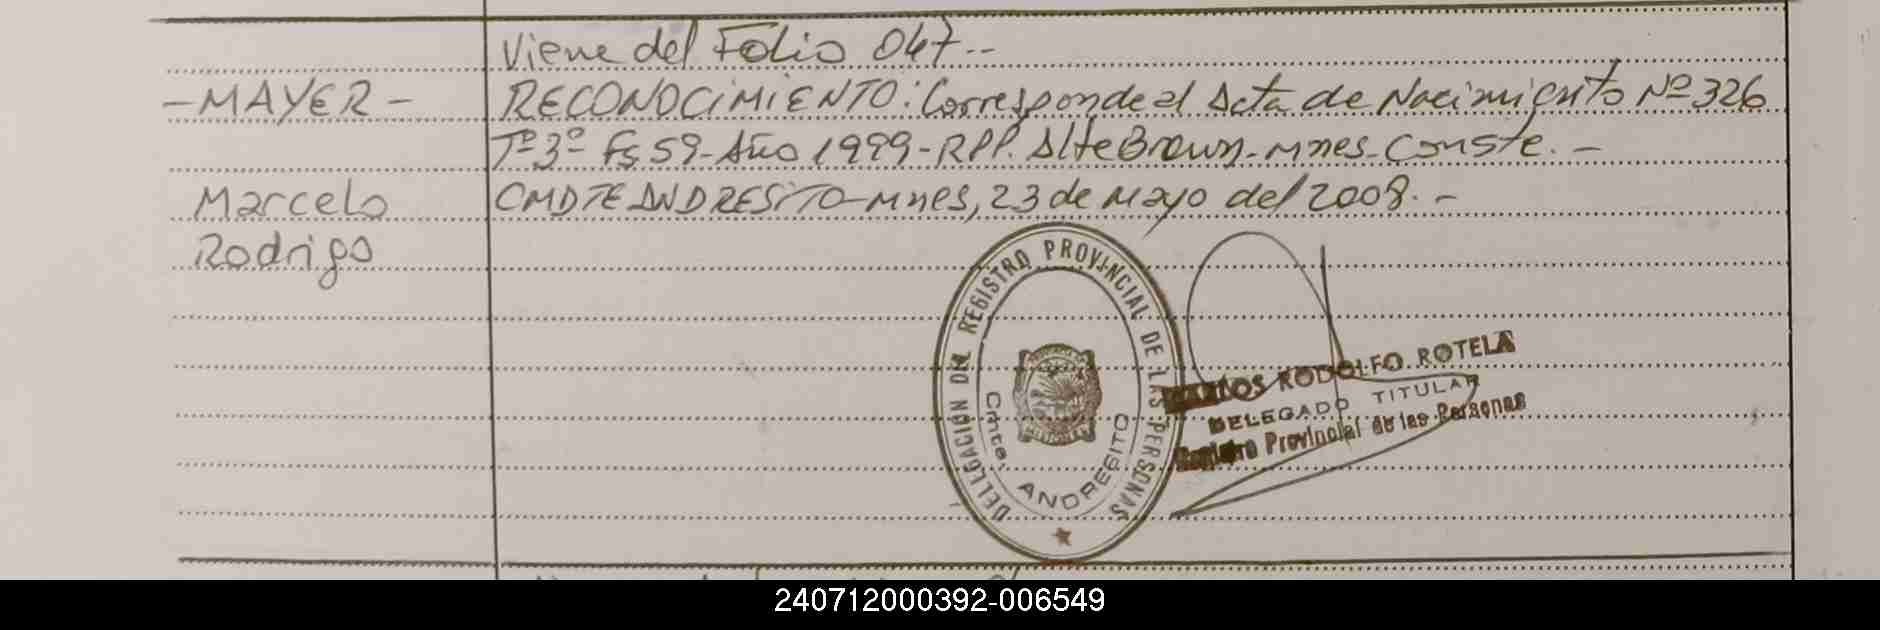 Viene del Folio 047--
-MAYER-
RECONOCIMIENTO: Corresponde al Acta de Nacimiento Nº 326
Tº 3º Fs 59-Año 1999-RPP. Alte Brown-Mnes-Conste.-
Marcelo
CMDTE ANDRESITO-Mnes, 23 de Mayo del 2008.-
Rodrigo
DELEGACION DEL REGISTRO PROVINCIAL DE LAS PERSONAS
Cmte. ANDRESITO
CARLOS RODOLFO ROTELA
DELEGADO TITULAR
Registro Provincial de las Personas
240712000392-006549